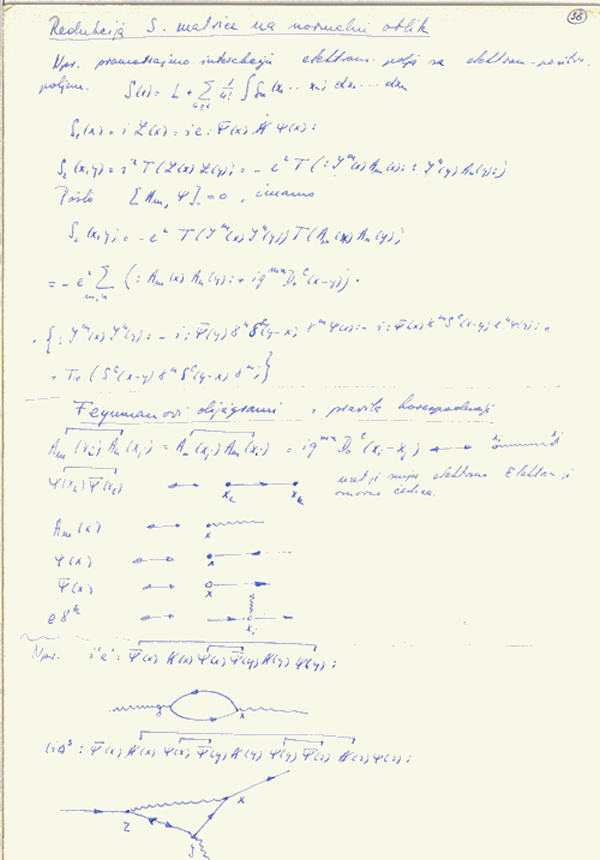 36
Redukcija S. matrice na normalni oblik
Npr. promatrajmo interakciju elektrom. polja sa elektron-pozitron.
poljem. S(1) = 1 + Σ 1/n! ∫ Sn(x1 ... xn) dx1 ... dxn
S1(x) = i L(x) = ie : Ψ̄(x) A̸ Ψ(x) :
S2(x,y) = i² T(L(x) L(y)) = - e² T(: J^m(x) Am(x) :: J^n(y) An(y) :)
Pošto [Am, Ψ]_ = 0, imamo
S2(x,y) = - e² T(J^m(x) J^n(y)) T(Am(x) An(y))
= - e² Σ m,n (: Am(x) An(y) : + i g^mn D0^c(x-y)) ·
· { : J^m(x) J^n(y) : - i : Ψ̄(y) γ^n S^c(y-x) γ^m Ψ(x) : - i : Ψ̄(x) γ^m S^c(x-y) γ^n Ψ(y) : +
+ Tr (S^c(x-y) γ^n S^c(y-x) γ^m) }
Feynmanovi dijagrami i pravila korespodencije
Am(xi) An(xj) = An(xj) Am(xi) = i g^mn D0^c(xi - xj)
Ψ(xk) Ψ̄(xl) xl xk
elektrona Elektron i
Am(x) x
Ψ(x) x
Ψ̄(x) x
e γ^k xi
Npr. i²e² : Ψ̄(x) A̸(x) Ψ(x) Ψ̄(y) A̸(y) Ψ(y) :
y x
(ie)³ : Ψ̄(x) A̸(x) Ψ(x) Ψ̄(y) A̸(y) Ψ(y) Ψ̄(z) A̸(z) Ψ(z) :
x
z
y